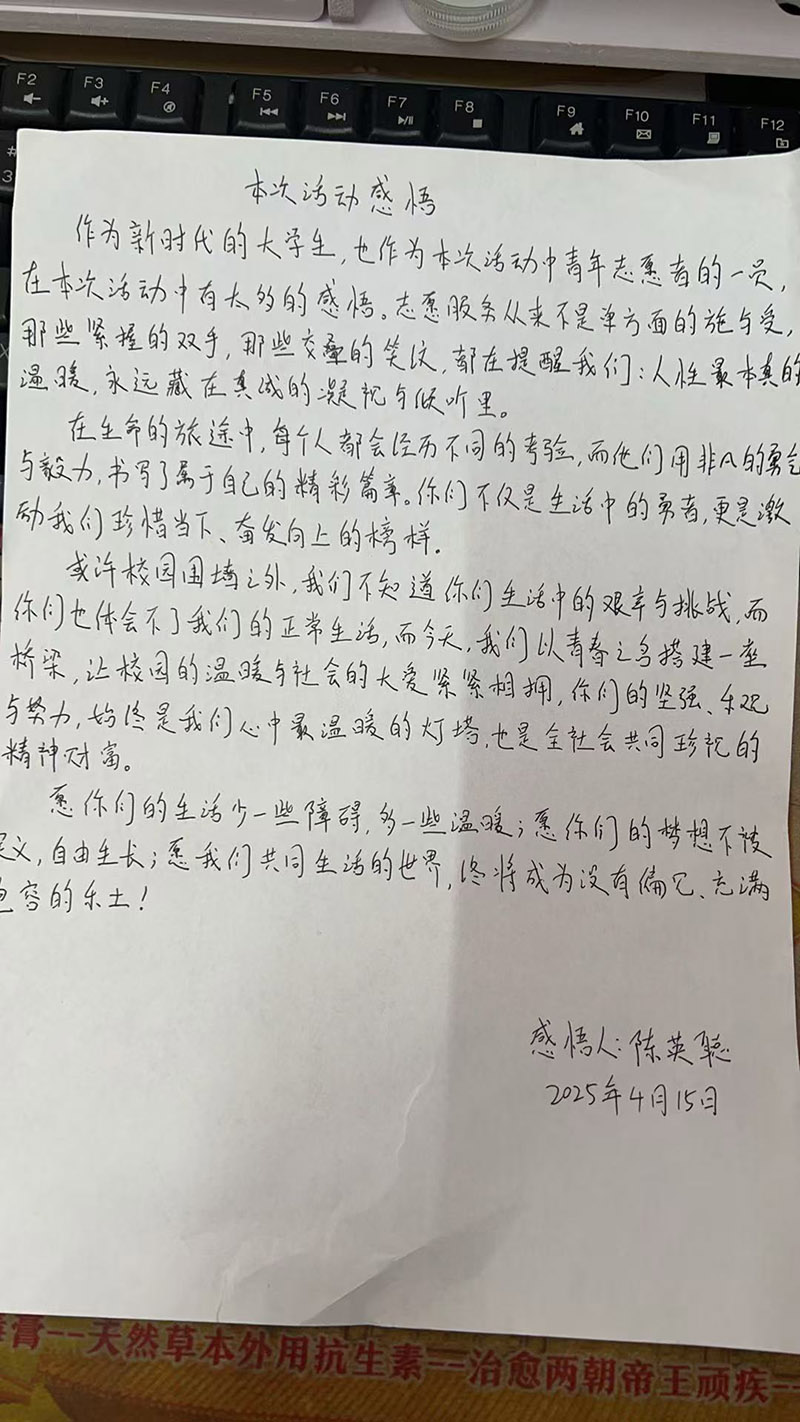 F2
F3
F4
F5
F6
F7
F8
F9
F10
F11
F12
#
3
本次活动感悟
作为新时代的大学生,也作为本次活动中青年志愿者的一员,
在本次活动中有太多的感悟。志愿服务从来不是单方面的施与受,
那些紧握的双手,那些交叠的笑纹,都在提醒我们:人性最本真的
温暖,永远藏在真诚的凝视与倾听里。
在生命的旅途中,每个人都会经历不同的考验,而他们用非凡的勇气
与毅力,书写了属于自己的精彩篇章。你们不仅是生活中的勇者,更是激
励我们珍惜当下、奋发向上的榜样.
或许校园围墙之外,我们不知道你们生活中的艰辛与挑战,而
你们也体会不了我们的正常生活,而今天,我们以青春之名搭建一座
桥梁,让校园的温暖与社会的大爱紧紧相拥,你们的坚强、乐观
与努力,始终是我们心中最温暖的灯塔,也是全社会共同珍视的
精神财富。
愿你们的生活少一些障碍,多一些温暖;愿你们的梦想不被
定义,自由生长;愿我们共同生活的世界,终将成为没有偏见、充满
包容的乐土!
感悟人:陈英聪
2025年4月15日
膏--天然草本外用抗生素--治愈两朝帝王顽疾--